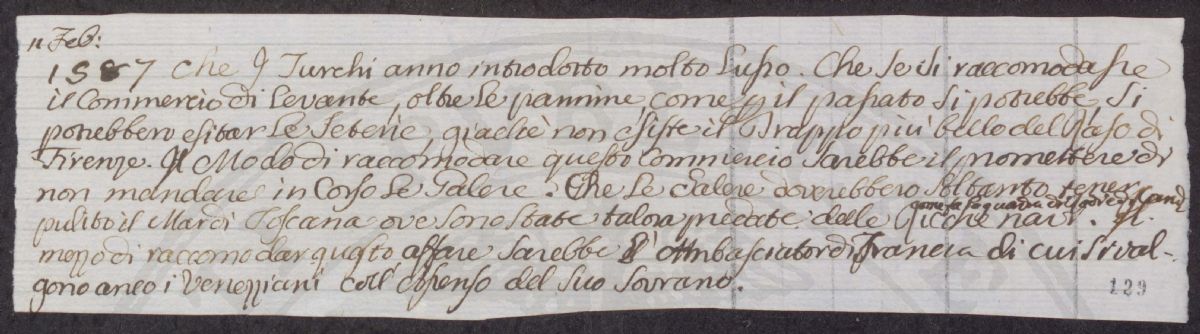 11 Feb:
1587 Che i Turchi anno introdotto molto Lusso. Che se si raccomodasse
il Commercio di Levante, oltre le pannine, come p il passato si potrebbe, si
potrebbero esitar le Seterie, giachè non esiste il Drappo più bello del Raso di
Firenze. Il Modo di raccomodare questo Commercio sarebbe il promettere di
non mandare in Corso le Galere. Che le Galere doverebbero soltanto tener
pulito il Mar di Toscana ove sono state talora predate delle ricche navi.
come fa la guardia del
Il
mezzo di raccomodar questo affare sarebbe l'Ambasciator di Francia di cui si val-
gono anco i Veneziani coll'
del suo Sovrano.
129